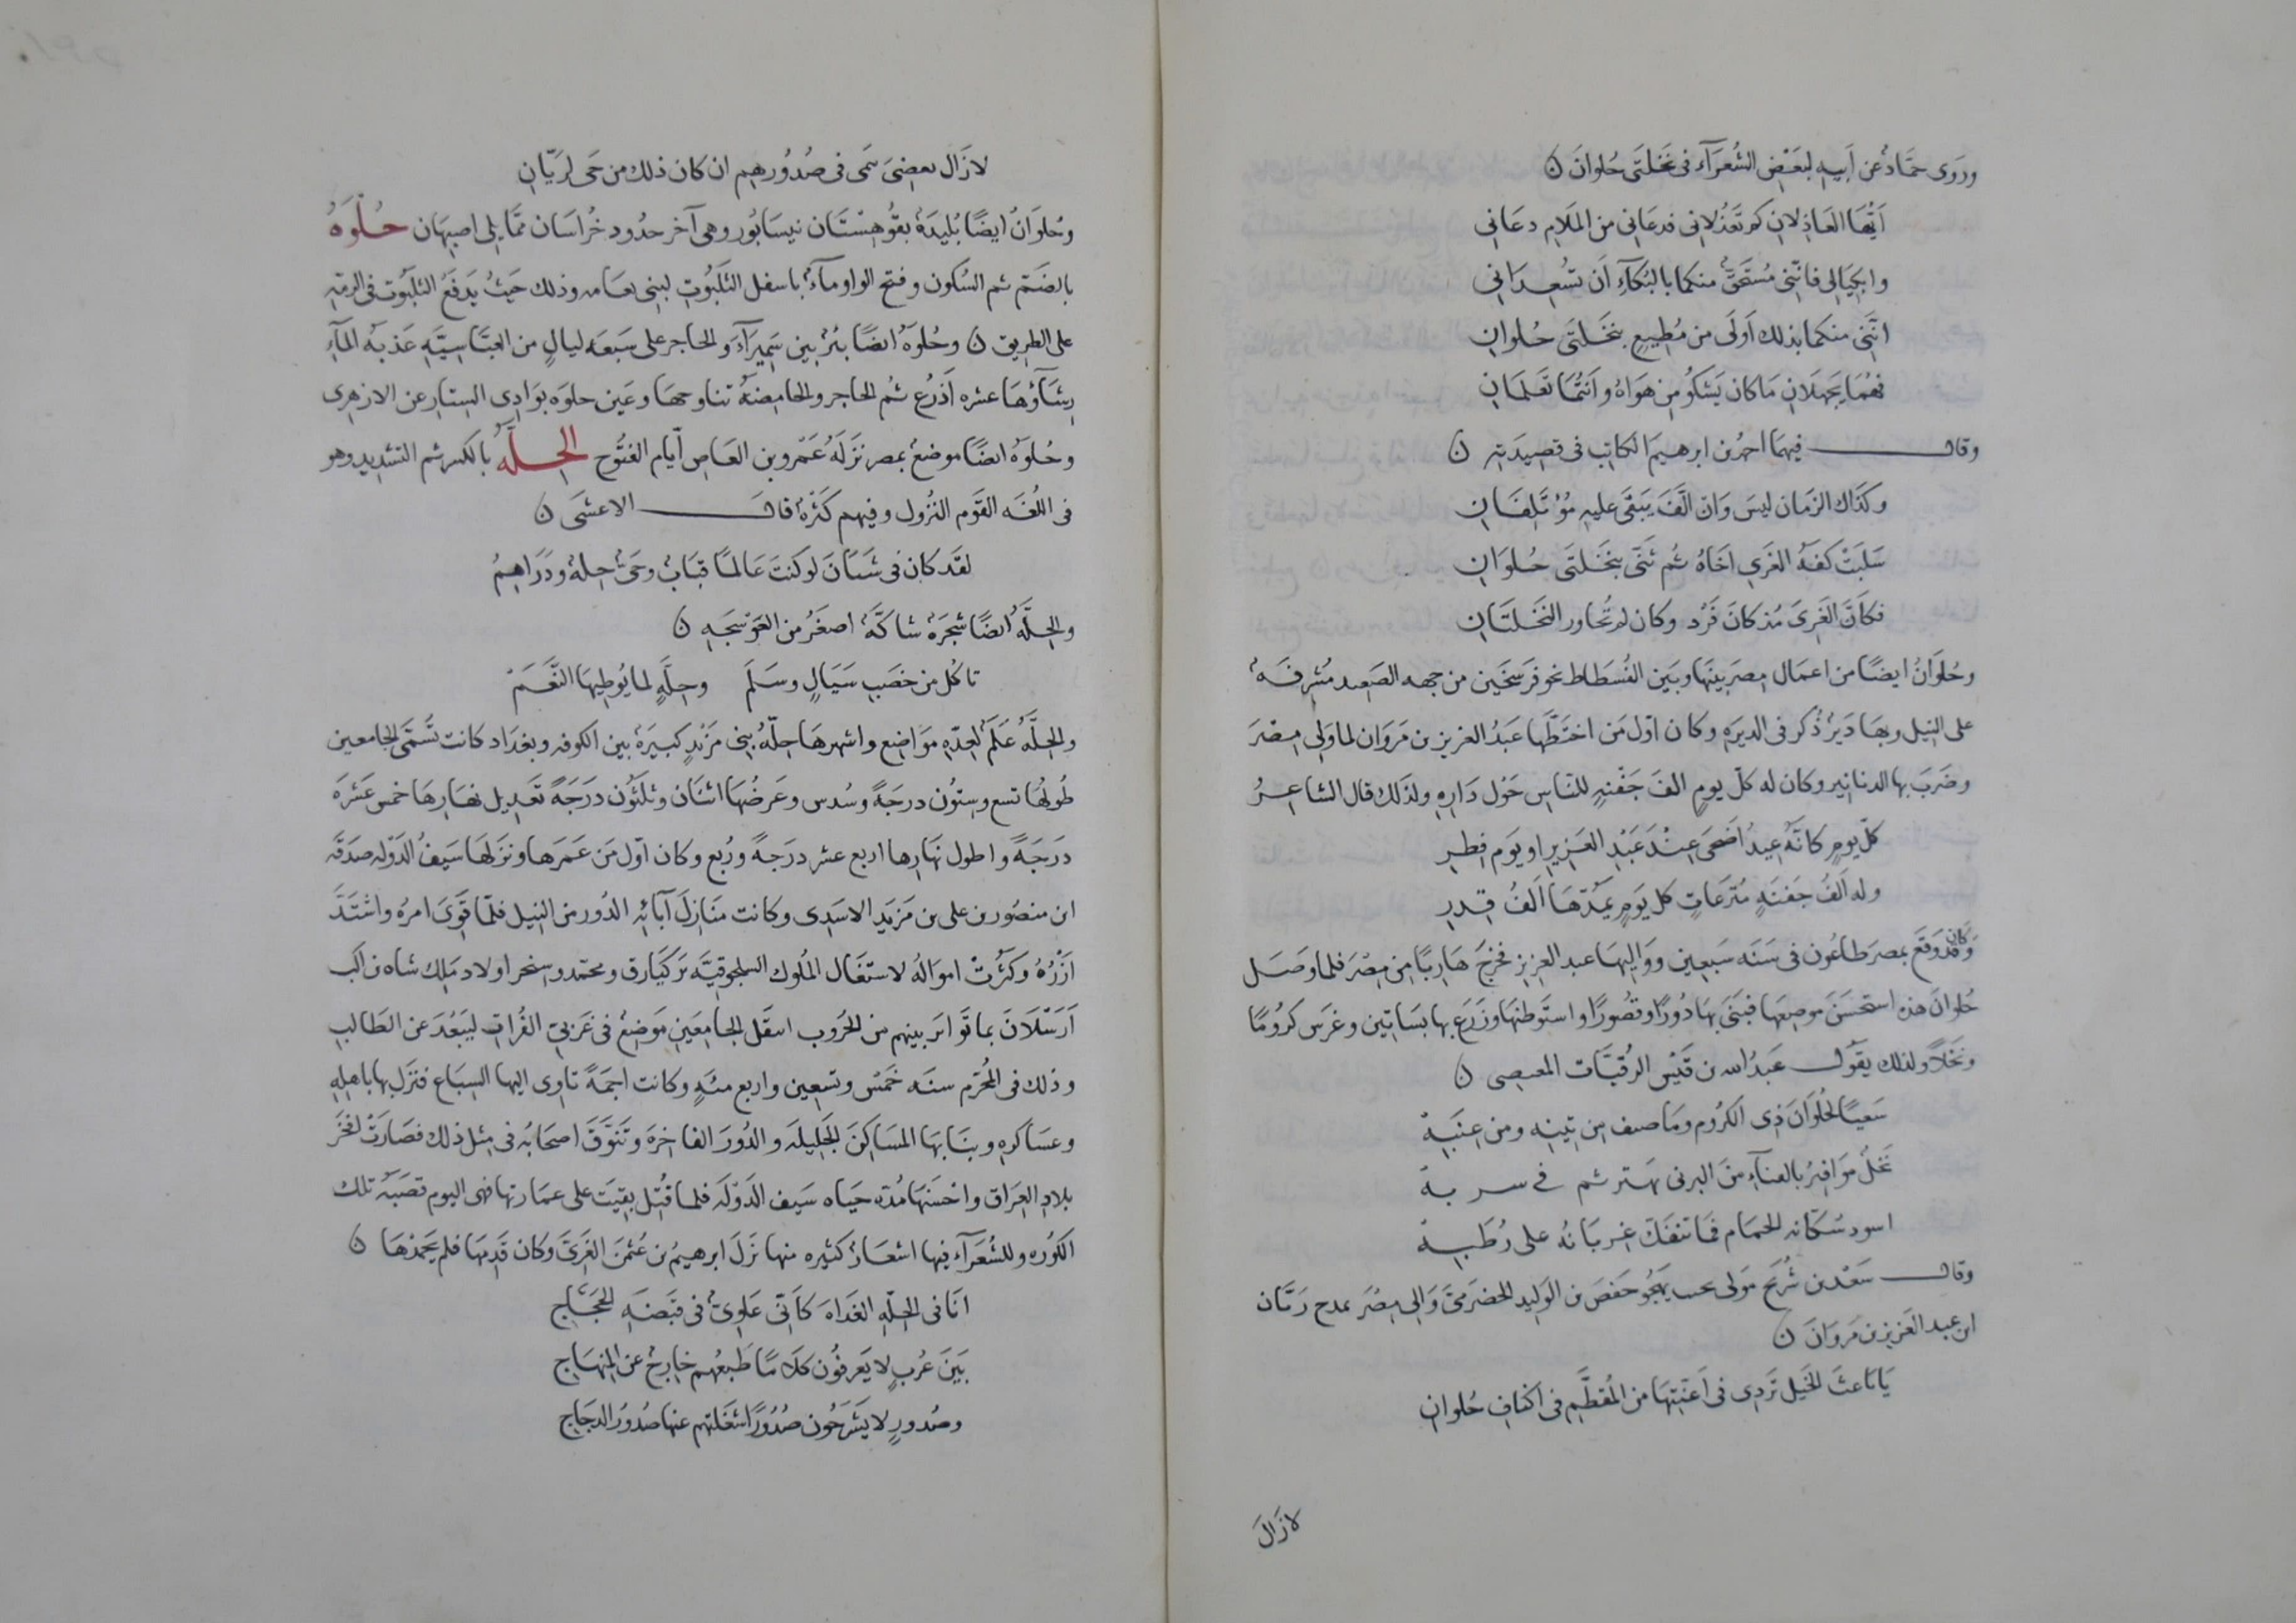 وروى حمّادٌ عن اَبيهِ لبَعْضِ الشُعَرَآءِ فى نَخلتَى حُلوانَ ن
اَيّها العَاذِلانِ كم تَعَذُلانِى فدعَانِى من المَلَامِ دعَانِى
وابكِيَا لِى فانّنى مُستَحَقٌّ منكما بالبُكآءِ اَن تُسُعِدَانِى
انّنى منكما بذلك اَولَى من مُطِيعٍ بنَخَلتَى حُلوانِ
فهُمَا يَجهلَانِ مَا كان يَشكُو مِن هوَاهُ وانتُمَا تعَلمَانِ
وقال فيهما احمدُ بن ابرهيمَ الكاتِب فى قصِيدَتهِ ن
وكذَاك الزمَان ليسَ وَان الَّفَ يَبقَى عليهِ مُؤتَلِفَانِ
سَلبَتْ كفّهُ الغَرِى اخَاهُ ثُم ثَنَّى بنَخلتَى حُلوَانِ
فكاَنَّ الغَرِىَّ مُذ كانَ فَرْد وكان لم تُجاور النخَلتَانِ
وحُلوَانُ ايضًا من اعمَال مِصرَ بينَها وبَين الفُسطَاط نحو فرَسخَين من جهه الصَعيد مُشرِفَهٌ
على النِيل وبها دَيرٌ ذُكر فى الديَرَهِ وكان اوّل مَن اختَطَّها عبَدُ العزيز بن مَروَان لما وَلِى مِصْرَ
وضَربَ بها الدنانِير وكان له كلّ يومٍ الفَ جَفْنهٍ للنّاسِ حَوْل دَارِهِ ولذَلك قال الشاعِرُ
كلّ يومٍ كانّهُ عِيدُ اَضحَى عِندَ عَبْدِ العَزِيزِ او يوَم فِطرِ
وله اَلفُ جَفنَهٍ مُترَعَاتٍ كل يَومٍ يَمُدّهَا الَفُ قِدرِ
وَكان قد وَقَع بمصرَ طاعُون فى سَنَه سَبعِين ووَالِيهَا عبد العزيزِ فخرجَ هَارِبًا مِن مِصْرَ فلما وصَل
حُلوانَ هذه استحَسَنَ موضِعَها فبَنَى بهَا دُورًا وقصُورًا واستَوطنَها وزَرَع بها بسَاتِين وغرَس كرُومًا
ونَخَلًا ولذلك يقوُل عبَدُ الله بن قَيْس الرُقيَّات
سَقيًا لحُلوَانَ ذِى الكرُوم ومَا صنف مِن تِينِهِ ومن عِنَبِهْ
نَخلٌ مَوَاقيرُ بالفنآءِ منَ البرنى يهتز ثم فى سربهْ
اسود سُكّانه الحمام فمَا تنفَكّ غِربَانُه على رُطَبِهْ
وقال سَعْد بن شُرَيحٍ مَولى يهَجُو حَفصَ بن الوَلِيد الحضرمىَّ وَالِى مِصْرَ بمدح زَبّان
ابن عبد العَزِيز بن مَروَانَ ن
يَا بَاعثَ الخَيل تَردِى فى اَعنّتِهَا من المُقطَّمِ فى اكنَافِ حُلوانِ
لا زَالَ
لا زَال بعضِىَ سمى فى صُدُورِهِم ان كان ذلك من حَى لرَيّانِ
وحُلوَانُ ايضًا بُليدَهٌ بقوُهِستَان نيسَابُور وهى آخر حدُود خُراسَان ممّا يلِى اصبِهَان حُلْوَهُ
بالضَم ثم السُكون وفتح الواو مآءٌ باسفل الثَلَبُوتِ لبنِى نعَامه وذلك حَيثُ يَدفَعُ الثلبُوت فى الرمّهِ
على الطرِيق ن وحُلوَهُ ايضًا بِئرٌ بين سَمِيرَآءَ والحاجر على سَبعَه ليالٍ من العبّاسِيَّهِ عَذبَهُ المآءِ
رِشَآؤُهَا عشره اَذرُع ثُم الحاجر والحامِضهُ تناوحها وعَين حلوَه بوَادِى السِتار عن الازهرى
وحُلوَهُ ايضًا موضعٌ بمصر نَزلَهُ عَمْرو بن العَاصِ اَيّام الفُتُوح الحِلَّهُ بالكسر ثم التشديد وهو
فى اللُغَه القوَم النُزول وفيهم كثَرَهٌ قال الاعشَى ن
لقَد كان فى شَيبَانَ لو كنتَ عَالمًا قبَابٌ وحَىٌّ حِلهٌ ودَرَاهِمُ
والحِلّهُ ايضًا شجَرَهٌ شاكّهٌ اصغَرُ من العَوْسجَهِ ن
تاكُل من خصَبِ سَيَالٍ وسَلَم وحِلّهٍ لما يُوطِيهَا النَّعَمْ
والحِلَّهُ عَلَم لعدّهِ موَاضِع واشهرهَا حِلّهُ بنِى مَزْيَدٍ كبيَرَهٌ بين الكوفه وبغدَاد كانت تُسَمَّى الجامعين
طُولهُا تسع وسِتوُن درجَهً وسُدس وعَرضُهَا اثنَان وثلثُون دَرَجَهً تعَدِيل نهَارِهَا خمس عشرَهَ
دَرَجَهً واطول نَهَارِها اربع عشر درَجهً ورُبع وكان اوّل مَن عَمَرهَا ونزلهَا سَيفُ الدَوله صدَقه
ابن منصُور بن على بن مَزيَدِ الاسَدِى وكانت منَازِلَ آبَائهِ الدُور من النيل فلمّا قَوِىَ امرُه واشتَدَّ
اَزْرُهُ وكثُرتْ اموَالهُ لاشتغَال المُلوك السلجوقيَّه بَركيَارق ومحمّد وسنجر اولاد مَلِك شاه بن اَلب
اَرَسْلَانَ بما توَاترَ بينهم من الحُرَوب انتقَل الى الجامِعَين مَوضِعٌ فى غَربىّ الفُراتِ ليَبعُدَ عن الطَالب
وذلك فى المحُرّمِ سنَه خَمْسٍ وتسعِين واربع مئهٍ وكانت اجمَهً تاوِى اليها السِبَاع فنَزل بها باهلِهِ
وعسَاكرِهِ وبنَا بهَا المسَاكِنَ الجَلِيلهَ والدُورَ الفاخِرَهَ وتَنوّقَ اصحَابُه فى مِثل ذلك فصَارَتْ افخَرَ
بلادِ العِرَاق واحْسَنهَا مُدّه حيَاه سَيف الدَوْلهَ فلما قُتِل بقيَت على عمَارتها فهى اليوم قصَبَهُ تلك
الكوُره وللشُعَرَآء فيها اشعَارٌ كثيره منها نَزلَ ابرهيمُ بن عُثمنَ الغَزِىّ وكان قَدِمهَا فلم يَحمَدْهَا ن
انَا فى الحلّهِ الغَدَاهَ كاَنّى عَلوِىٌّ فى قبَضهَ الحَجّاجِ
بَينَ عُربٍ لا يَعرفوُن كلَامًا طَبعُهم خارِجٌ عن المِنهَاجِ
وصُدورٍ لا يَشرَحُون صُدُورًا شغَلتهم عنها صُدُورُ الدجَاجِ